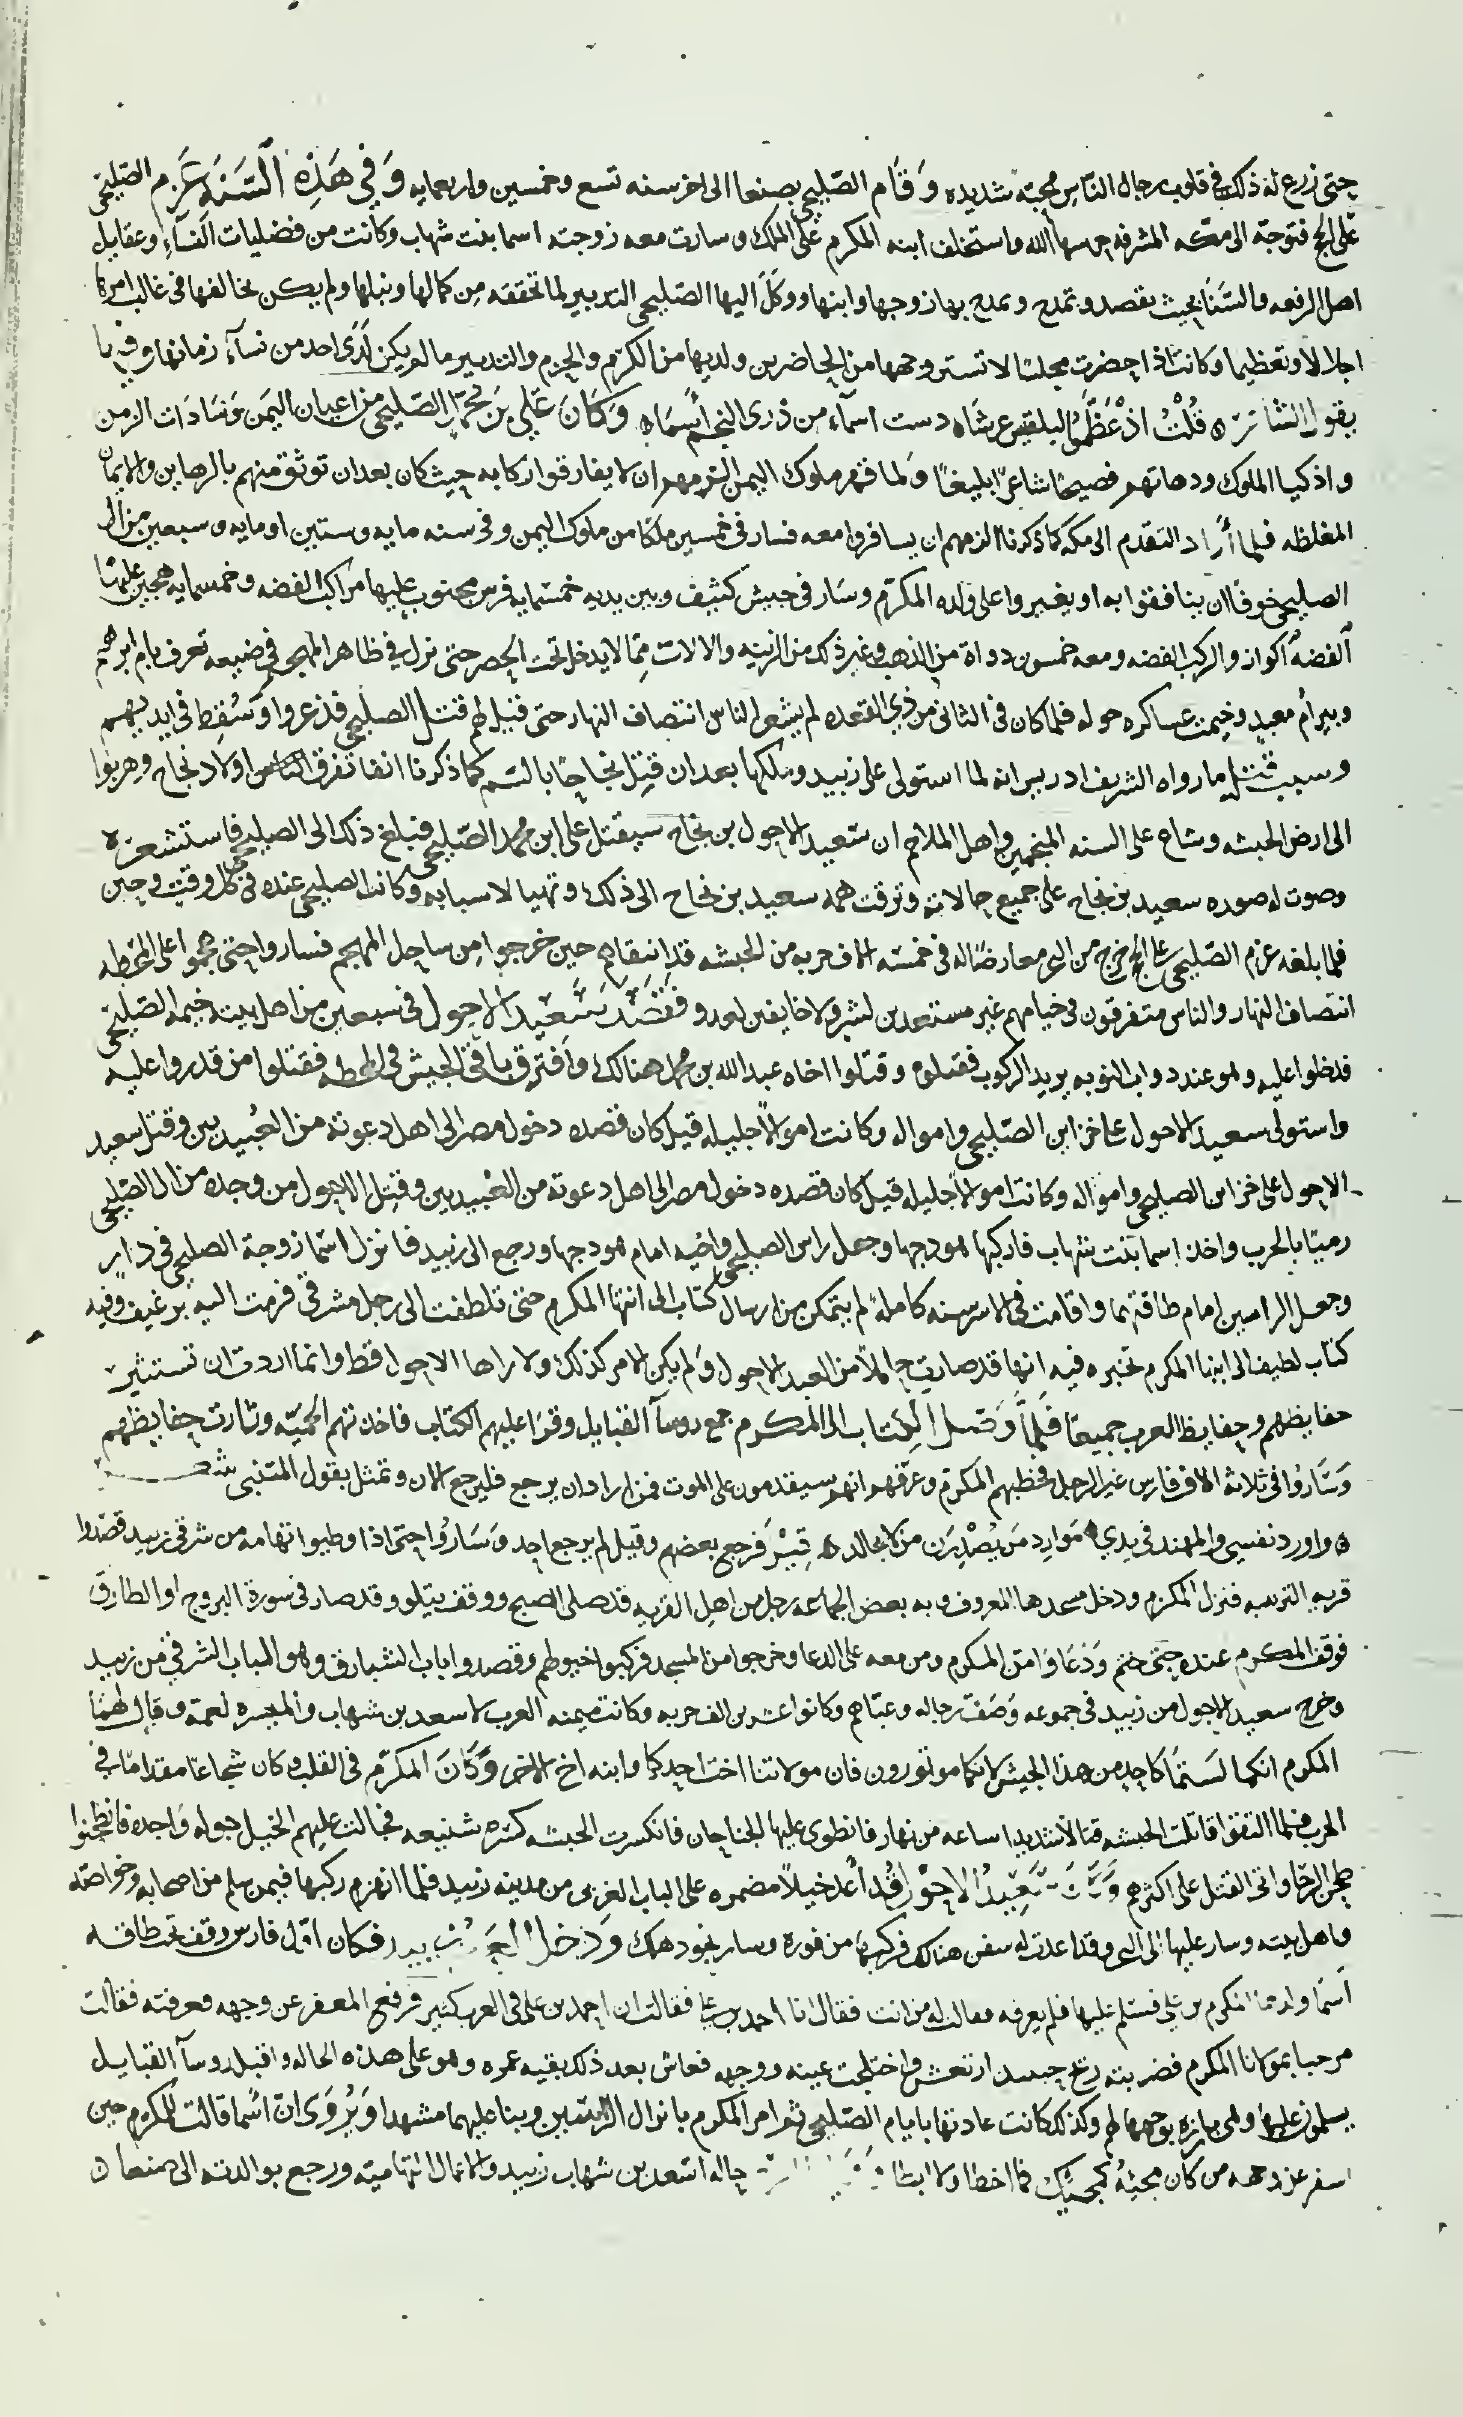 حتى زرع له ذلك في قلوب رجال الناس محبة شديده وَقَام الصّليحي بصنعا الى اخر سنه تسع وخمسين واربعمايه وَفي هَذِه السَّنَه عَزم الصّليحي
على الحج فتوجّه الى مكّه المشرفه حرسها الله واستخلف ابنه المكرم على الملك وسارت معه زوجته اسما بنت شهاب وكانت من فضليات النسآء وعقايل
اهل الرفعه والسَّنَا بحيث تقصد وتمدح ويمدح بها زوجها وابنها ووكلَ اليها الصّليحي التدبير لما تحققه من كمالها ونبلها ولم يكن يخالفها في غالب امرها
اجلالا وتعظيما وكانت اذا حضرت مجلسًا لا تستر وجهها من الحاضرين ولديها من الكرم والحزم والتدبير ما لم يكن لدى احد من نسآء زمانها وفيها
يقول الشاعر ه قُلْتُ اذ عَظّمُوا لبلقيس عرشًا ه دست اسمآء من ذرى النجم أسْمَاه وَكَانَ عَلي بن محمّد الصّليحي من اعيان اليمَن وَسَادَات الزمن
واذكيا الملوك ودهاتهم فصيحًا شاعرًا بليغًا ولما قهر ملوك اليمن الزمهم ان لا يفارقوا ركابه حيث كان بعد ان توثق منهم بالرهاين والايمان
المغلظه فلما أراد التقدم الى مكه كما ذكرنا الزمهم ان يسافروا معه فسار في خمسين ملكًا من ملوك اليمن وفي سنه مايه وستين او مايه وسبعين من ال
الصليحي خوفًا ان ينافقوا به او يغيروا على ولده المكرّم وسَار في جيش كثيف وبين يديه خمسمايه فرس مجنوب عليها مراكب الفضه وخمسمايه هجين عليها
الفضه اكوار والركب الفضه ومعه خمسون دواة من الذهب وغير ذلك من الزينه والالات ممّا لا يدخل تحت الحصر حتى نزل في ظاهر المهجم في ضيعه تعرف بام ابرهيم
وبير أم معبد وخيمت عساكره حوله فلما كان في الثاني من ذي القعده لم يشعر الناس انتصاف النهار حتى قيل لهم قتل الصليحي فذعروا وَسُقِط في ايديهم
وسبب قتله ما رواه الشريف ادريس انه لما استولى على زبيد وملكها بعد ان قُتِل نجاحًا بالسّم كما ذكرنا انفا تفرق اولاد نجاح وهربوا
الى ارض الحبشه وشاع على السنه المنجمين واهل الملاحم ان سعيد الاحول بن نجاح سيقتل على ابن محمد الصّليحي فبلغ ذلك الى الصليحي فاستشعره
وصوت له صوره سعيد بن نجاح على جميع حالاته وترقت همه سعيد بن نجاح الى ذلك وتهيا لاسبابه وكانت الصليحي عنده في كل وقت وحين
فلما بلغه عزم الصّليحي على الحج خرج من البحر معارضًا له في خمسَه الاف حربه من الحبشه قد انتقاهم حين خرجوا من ساحل المهجم فساروا حتى هجموا على المحطه
انتصاف النهار والناس متفرقون في خيامهم غير مستعدين لشر ولا خايفين لعدو فَقَصَدَ سَعيد الاحول في سبعين من اهل بيته خيمه الصّليحي
فدخلوا عليه وهو عند دواب النوبه يريد الركوب فقتلوه وقتلوا اخاه عبد الله بن محمد هنالك وافترق باقي الجيش في المحطه فقتلوا من قدروا عليه
واستولى سعيد الاحول على خزاين الصّليحي وامواله وكانت اموالًا جليله قيل كان قصده دخول مصر الى اهل دعوته من العُبيديين وقتل سعيد
الاحول على خزاين الصليحي وامواله وكانت اموالًا جليله قيل كان قصده دخول مصر الى اهل دعوته من العُبيديين وقتِل الاحول من وجده من ال الصّليحي
رميًا بالحرب واخذ اسما بنت شهاب فاركبها هودجها وجعل راس الصليحي واخيه امام هودجها ورجع الى زبيد فانزل اسما زوجة الصليحي في دارٍ
وجعل الراسين امام طاقتها واقامت في الاسر سنه كاملهً لم يتمكن من ارسال كتاب الى ابنها المكرم حتى تلطفت الى رجل مشرقي فرمت اليه برغيف وفيه
كتاب لطيف الى ابنها المكرم تخبره فيه انها قد صارت حاملًا من العبد الاحول وَلم يكن الامر كذلك ولا راها الاحول قط وانما اردت ان تستثير
حفايظهم وحفايظ العرب جميعًا فلما وَصَل الكتاب الى المكرم جمع روسآ القبايل وقرا عليهم الكتاب فاخذتهم الحميّه وثارت حفايظهم
وَسَارُوا في ثلاثة الاف فارس غير الرجل فخطبهم المكرّم وعرّفهم انهم سيقدمون على الموت فمن اراد ان يرجع فليرجع الان وتمثل بقول المتنبي شعر
ه واورد نفسي والمهند في يدي ه مَوارد مَن يُصْدِرَن من لا يجالد ه قيْل فرجع بعضهم وقيل لم يرجع احد وَسَارُوا حتى اذا وطيوا تهامه من شرقي زبيد قصَدوا
قريه التريبه فنزل المكرم ودخل مسجدها المعروف وبه بعض الجماعه رجل من اهل القريه قد صلى الصبح ووقف يتلو وقد صار في سورة البروج او الطارق
فوقف المكرم عنده حتى ختم وَدَعَا وَامّن المكرم ومن معه على الدعا وخرجوا من المسجد فركبوا خيولهم وقصدوا باب الشبارق وهو الباب الشرقي من زبيد
وخرج سعيد الاحول من زبيد في جموعه وَصَفّ رجاله وعبّاهم وكانوا عشرين الف حربه وكانت ميمنه العرب لاسعد بن شهاب والميسره لعمه وقال لهُما
المكرم انكما لستُمَا كاحدٍ من هذا الجيش لانكما موتورون فان مولاتنا اخت احدكما وابنه اخ الاخر وَكَانَ المكرّم في القلب وكان شجاعًا مقدامًا في
الحرب فلما التقوا قاتلت الحبشه قتالًا شديدا ساعه من نهار فانطوى عليها الجناحان فانكسرت الحبشه كسره شنيعه فجالت عليهم الخيل جوله واحده فانطحنوا
طحن الرحا واتى القتل على اكثرهم وَكَانَ سَعِيدُ الاحْوَل قُد أعد خيلًا مضمره على الباب الغربي من مدينه زبيد فلما انهزم ركبها فيمن سلم من اصحابه وخواصّه
واهل بيته وسار عليها الى البحر وقد اعدت له سفن هنالك فركبها من فوره وسار نحو دهلك وَدَخلَ العَرَبُ زبيد فكان اوّل فارس وقف تحت طاقه
اسَمَا ولدها المكرم بن علي فسَلم عليها فلم يعرفه فقالت له من انت فقال انا احمد بن علي فقالت ان احمد بن علي في العرب كثير فرفع المغفر عن وجهه فعرفته فقالت
مرحبا بمولانا المكرم فضربته ريح حينيد ارتعش واختلجت عينه ووجهه فعاش بعد ذلك بقيه عمره وهو على هذه الحاله واقبل روسآ القبايل
يسلمون عليها وهي بارزه بوجهها لهم وكذلك كانت عادتها بايام الصّليحي ثم امر المكرم بانزال الراسين وبنا عليهما مشهدا وَيُرْوَى ان اسْمَا قالت للمكرم حين
اسفر عن وجهه من كان مجيئهُ كمجيئك فما اخطا ولا ابطا خاله اسعد بن شهاب زبيد والاعمال التهاميه ورجع بوالدته الى صنعا